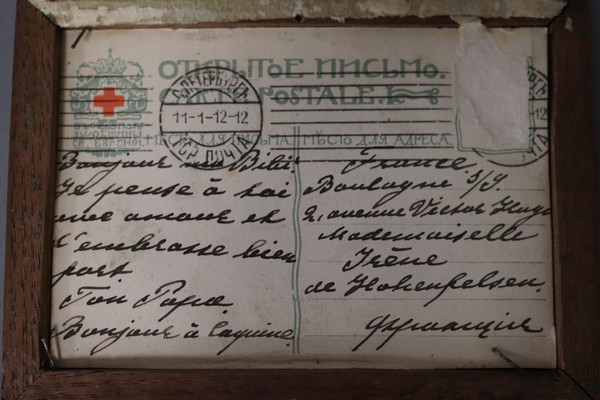 ОТКРЫТОЕ ПИСЬМО.
CARTE POSTALE.
С. ПЕТЕРБУРГЪ
11-1-12-12
ГОР. ПОЧТА
ВЪ ПОЛЬЗУ
ОБЩИНЫ
СВ. ЕВГЕНІИ
МѢСТО ДЛЯ ПИСЬМА.
МѢСТО ДЛЯ АДРЕСА.
Bonjour ma Bibi.
Je pense à toi
avec amour et
t'embrasse bien
fort
Ton Papa
Bonjour à
France
Boulogne s/S.
2, avenue Victor Hugo
Mademoiselle
Irène
de Hohenfelsen.
Франція